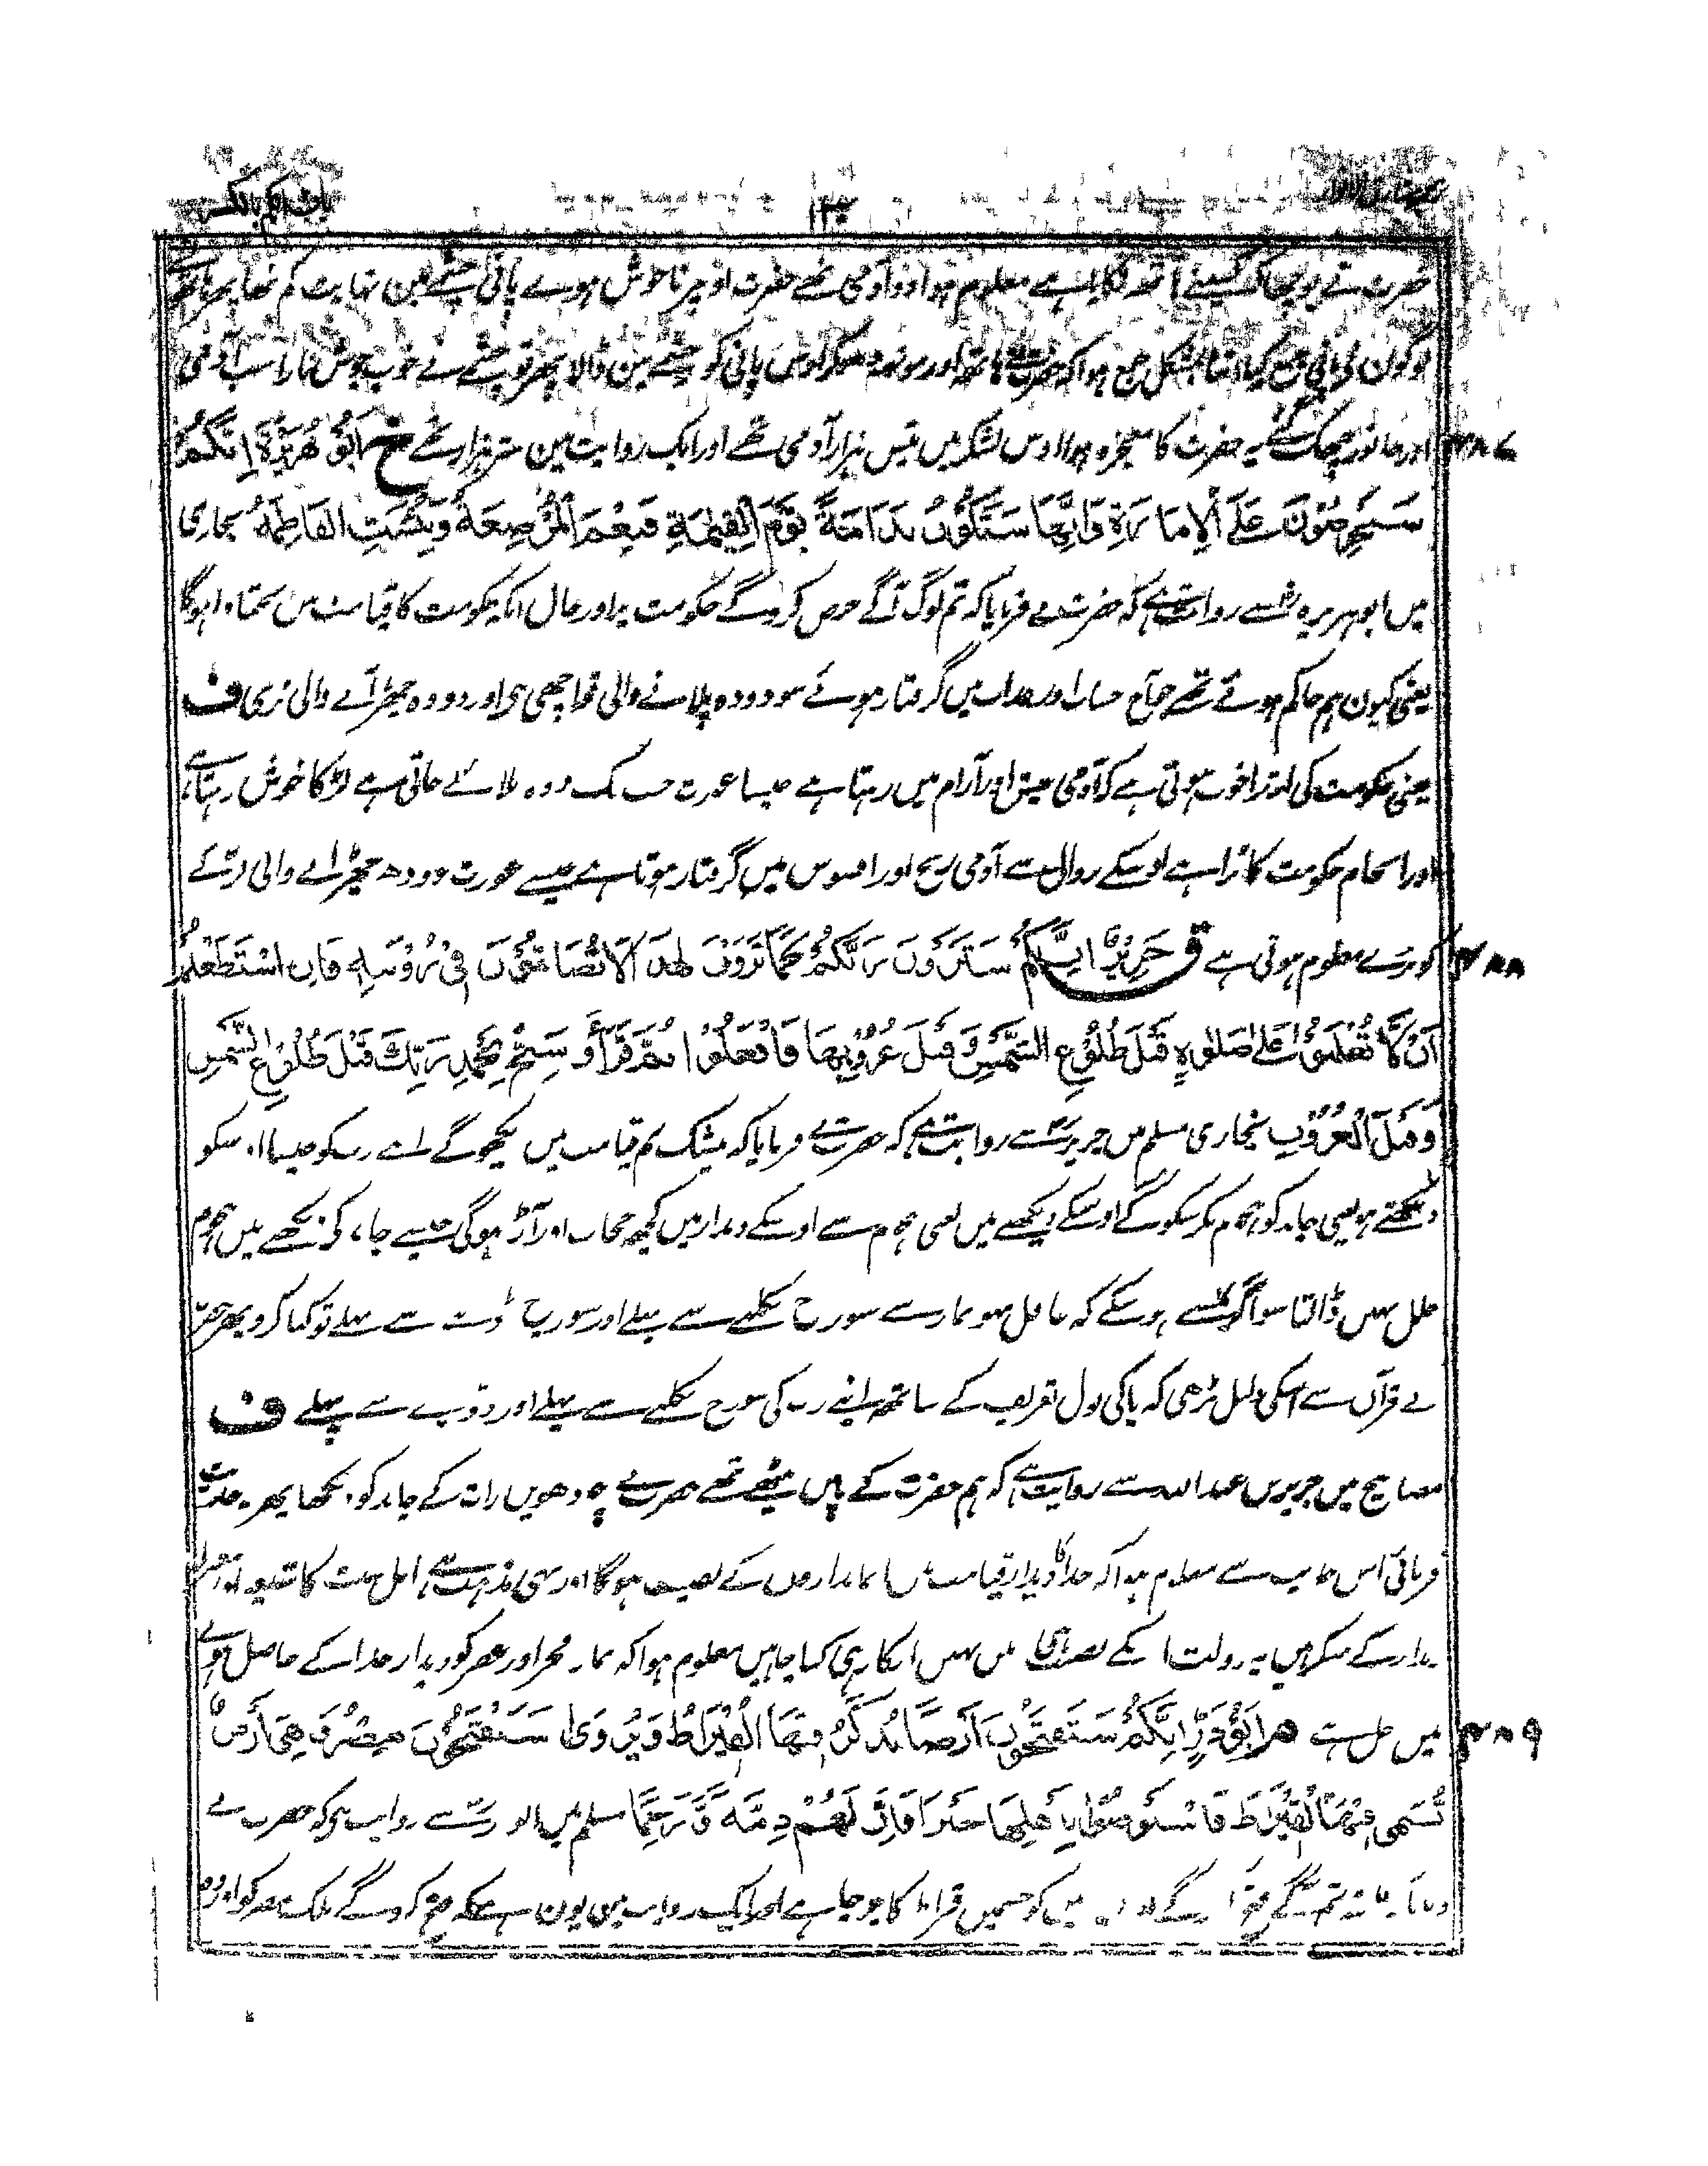 حضرت نے پوچھا کہ کسینے ہاتھ لگایا ہے معلوم ہوا دو آدمی تھے حضرت اونپر ناخوش ہوے پانی چشمے مین نہایت کم تھا پھر
لوگون نے پانی جمع کیا اتنا بشکل جمع ہوا کہ حضرت نے ہاتھ اور مونہہ دھوکر اوس پانی کو چشمے مین ڈالا پھر تو چشمے نے خوب جوش مارا سب آدمی
اور جانور چھک گئے یہ حضرت کا معجزہ ہوا اوس لشکر میں تیس ہزار آدمی تھے اور ایک روایت مین ستر ہزار تھے خ اَبُوْ هُرَيْرَةَ اِنَّكُمْ ۴۸۷
سَتَحْرِصُوْنَ عَلَى الْاِمَارَةِ وَاِنَّهَا سَتَكُوْنُ نَدَامَةً يَوْمَ الْقِيٰمَةِ فَنِعْمَ الْمُرْضِعَةُ وَبِئْسَتِ الْفَاطِمَةُ بخاری
میں ابوہریرہ رض سے روایت ہے کہ حضرت نے فرمایا کہ تم لوگ آگے حرص کروگے حکومت پر اور حال انکہ حکومت کا قیامت میں پچھتاوا ہوگا
یعنی کیون ہم حاکم ہوئے تھے جو آج حساب اور عذاب میں گرفتار ہوئے سو دودہ پلانے والی تو اچھی ہی اور دودہ چھڑانے والی بری ف
یعنی حکومت کی ابتدا خوب ہوتی ہے کہ آدمی عیش اور آرام میں رہتا ہے جیسا عورت جب تک دودہ پلائے جاتی ہے لڑکا خوش رہتا ہے
اور انجام حکومت کا برا ہے اوسکے زوال سے آدمی رنج اور افسوس میں گرفتار ہوتا ہے جیسے عورت دودھ چھڑانے والی لڑکے
کو بری معلوم ہوتی ہے ق جَرِيْرٌ اِنَّكُمْ سَتَرَوْنَ رَبَّكُمْ كَمَا تَرَوْنَ هٰذَا لَا تُضَامُّوْنَ فِيْ رُؤْيَتِهِ فَاِنِ اسْتَطَعْتُمْ ۴۸۸
اَنْ لَّا تُغْلَبُوْا عَلٰى صَلٰوةٍ قَبْلَ طُلُوْعِ الشَّمْسِ وَقَبْلَ غُرُوْبِهَا فَافْعَلُوْا ثُمَّ قَرَأَ وَسَبِّحْ بِحَمْدِ رَبِّكَ قَبْلَ طُلُوْعِ الشَّمْسِ
وَقَبْلَ الْغُرُوْبِ بخاری مسلم میں جریر رض سے روایت ہے کہ حضرت نے فرمایا کہ بیشک تم قیامت میں دیکھوگے اپنے رب کو جیسا اسکو
دیکھتے ہو یعنی چاند کو ہجوم نکر سکوگے اوسکے دیکھنے میں یعنی ہجوم سے اوسکے دیدار میں کچھ حجاب اور آڑ ہوگی جیسے چاند کے دیکھنے میں ہجوم
خلل نہیں ڈالتا سو اگر تمسے ہوسکے کہ غافل نہو نماز سے سورج نکلنے سے پہلے اور سورج ڈوبنے سے پہلے تو کیا کرو پھر حضرت
نے قرآن سے اسکی دلیل پڑھی کہ پاکی بول تعریف کے ساتھ اپنے رب کی سورج نکلنے سے پہلے اور ڈوبنے سے پہلے ف
مصابیح میں جریر بن عبد اللہ سے روایت ہے کہ ہم حضرت کے پاس بیٹھے تھے حضرت نے چودھویں رات کے چاند کو دیکھا پھر یہ حدیث
فرمائی اس حدیث سے معلوم ہوا کہ خدا کا دیدار قیامت میں ایمانداروں کے نصیب ہوگا اور یہی مذہب ہے اہل سنت کا شیعہ اور
دیدار کے منکر ہیں یہ دولت اونکے نصیب ہی میں نہیں انکار ہی کیا چاہیں معلوم ہوا کہ نماز فجر اور عصر کو دیدار خدا کے حاصل ہونے
میں دخل ہے م اَبُوْ ذَرٍّ اِنَّكُمْ سَتَفْتَحُوْنَ اَرْضًا يُذْكَرُ فِيْهَا الْقِيْرَاطُ وَيُرْوٰى سَتَفْتَحُوْنَ مِصْرَ وَهِيَ اَرْضٌ ۴۸۹
تُسَمّٰى فِيْهَا الْقِيْرَاطَ فَاسْتَوْصُوْا بِاَهْلِهَا خَيْرًا فَاِنَّ لَهُمْ ذِمَّةً وَّرَحِمًا مسلم میں ابوذر رض سے روایت ہی کہ حضرت نے
میں کو جسمیں قیراط کا چرچا ہے اور ایک روایت میں یون ہے کہ فتح کروگے ملک مصر کو اور وہ